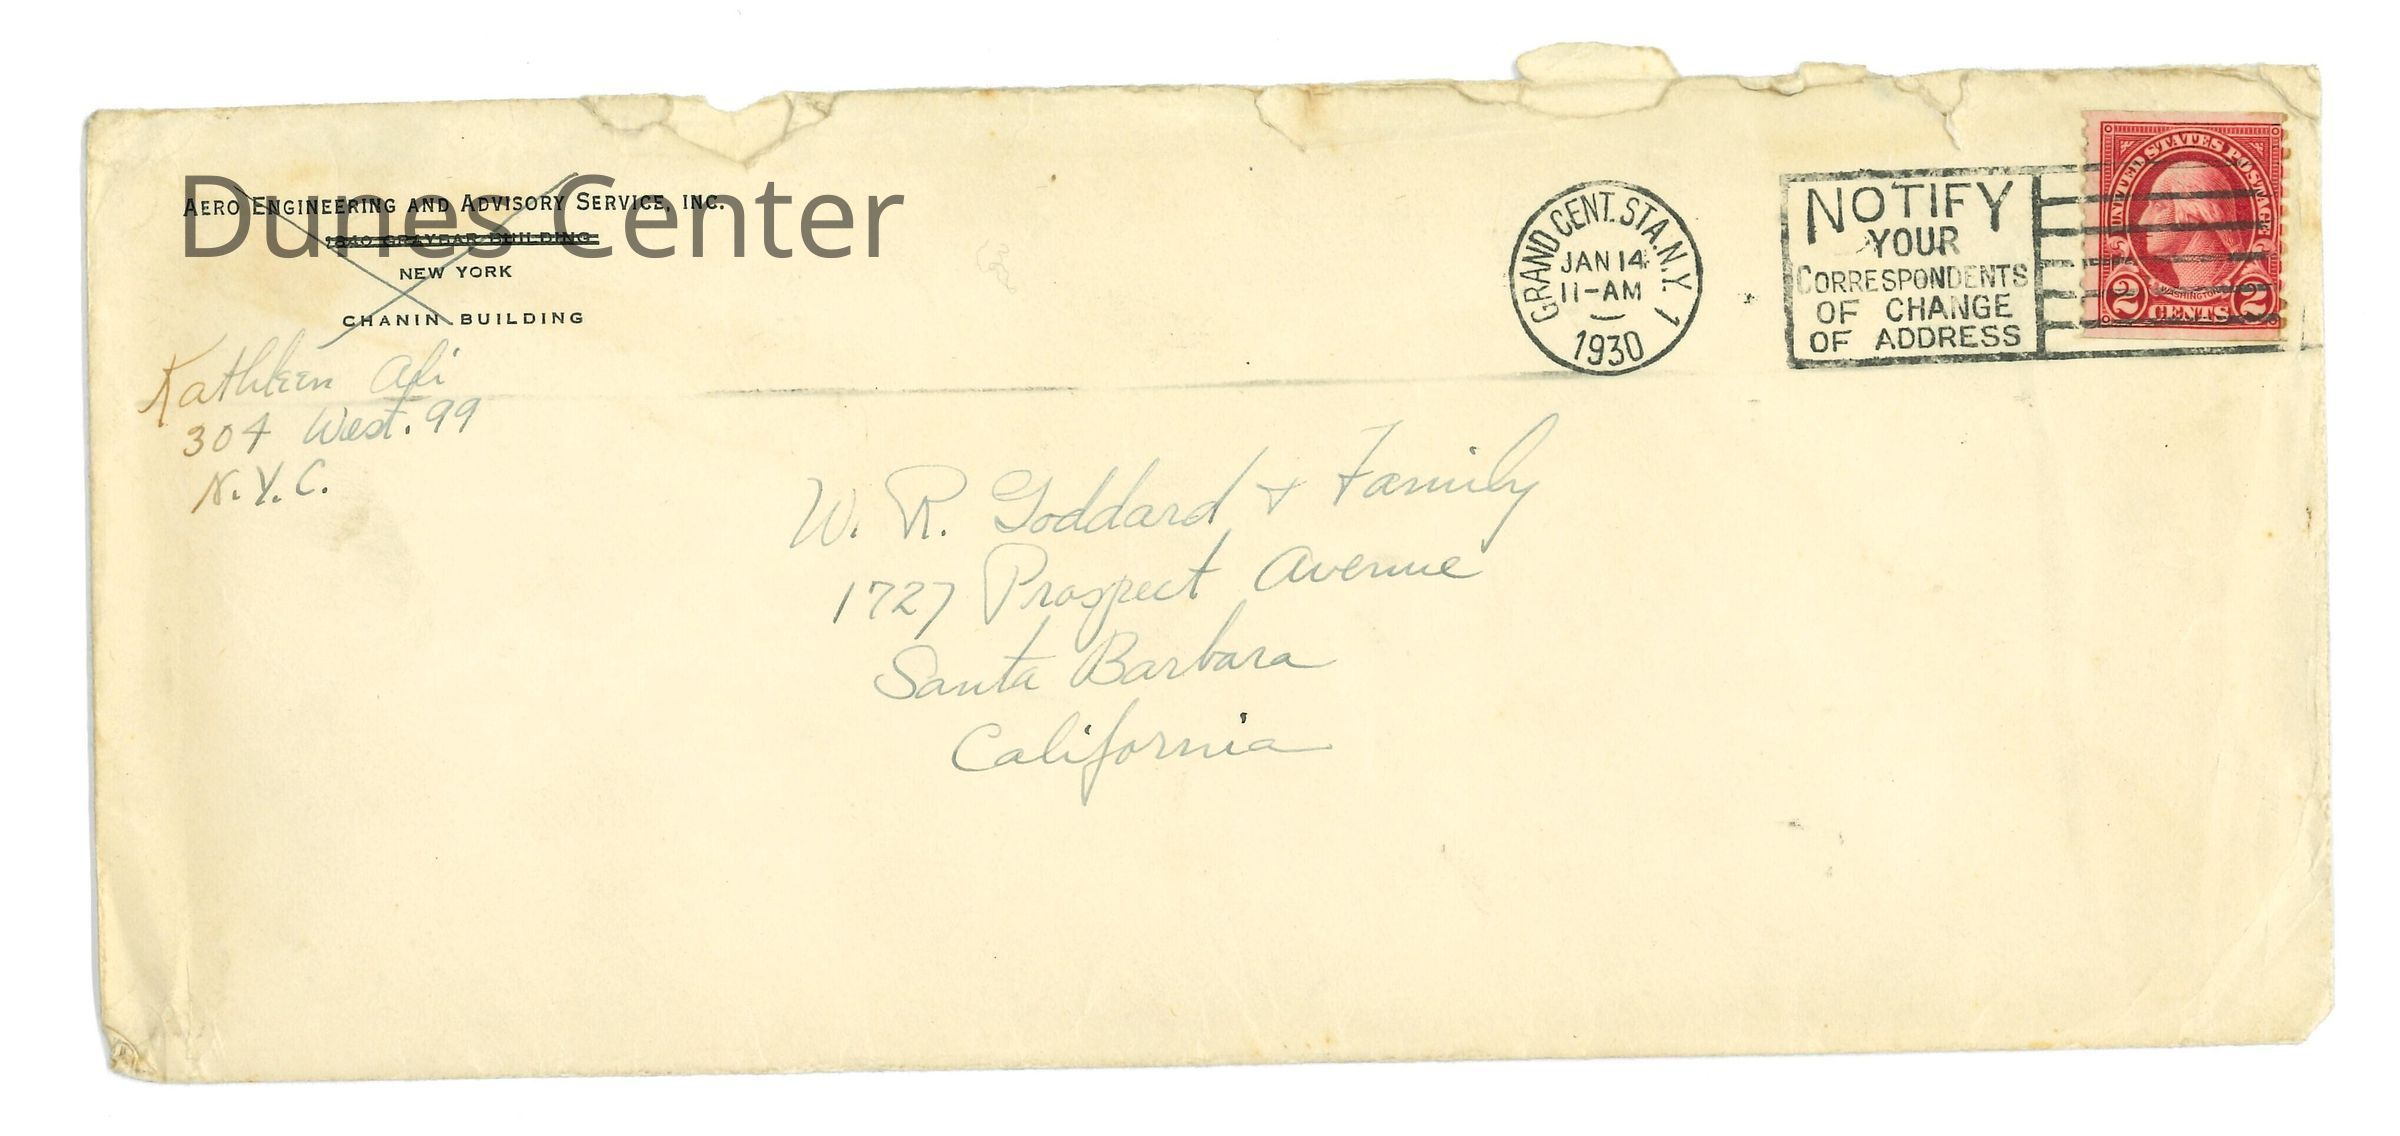 Dunes Center
AERO ENGINEERING AND ADVISORY SERVICE, INC.
1840 GRAYBAR BUILDING
NEW YORK
CHANIN BUILDING
Kathleen
304 West. 99
N.Y.C.
GRAND CENT. STA. N.Y. 1
JAN 14
11-AM
1930
NOTIFY
YOUR
CORRESPONDENTS
OF CHANGE
OF ADDRESS
UNITED STATES POSTAGE
WASHINGTON
2 CENTS 2
W. R. Goddard + Family
1727 Prospect Avenue
Santa Barbara
California